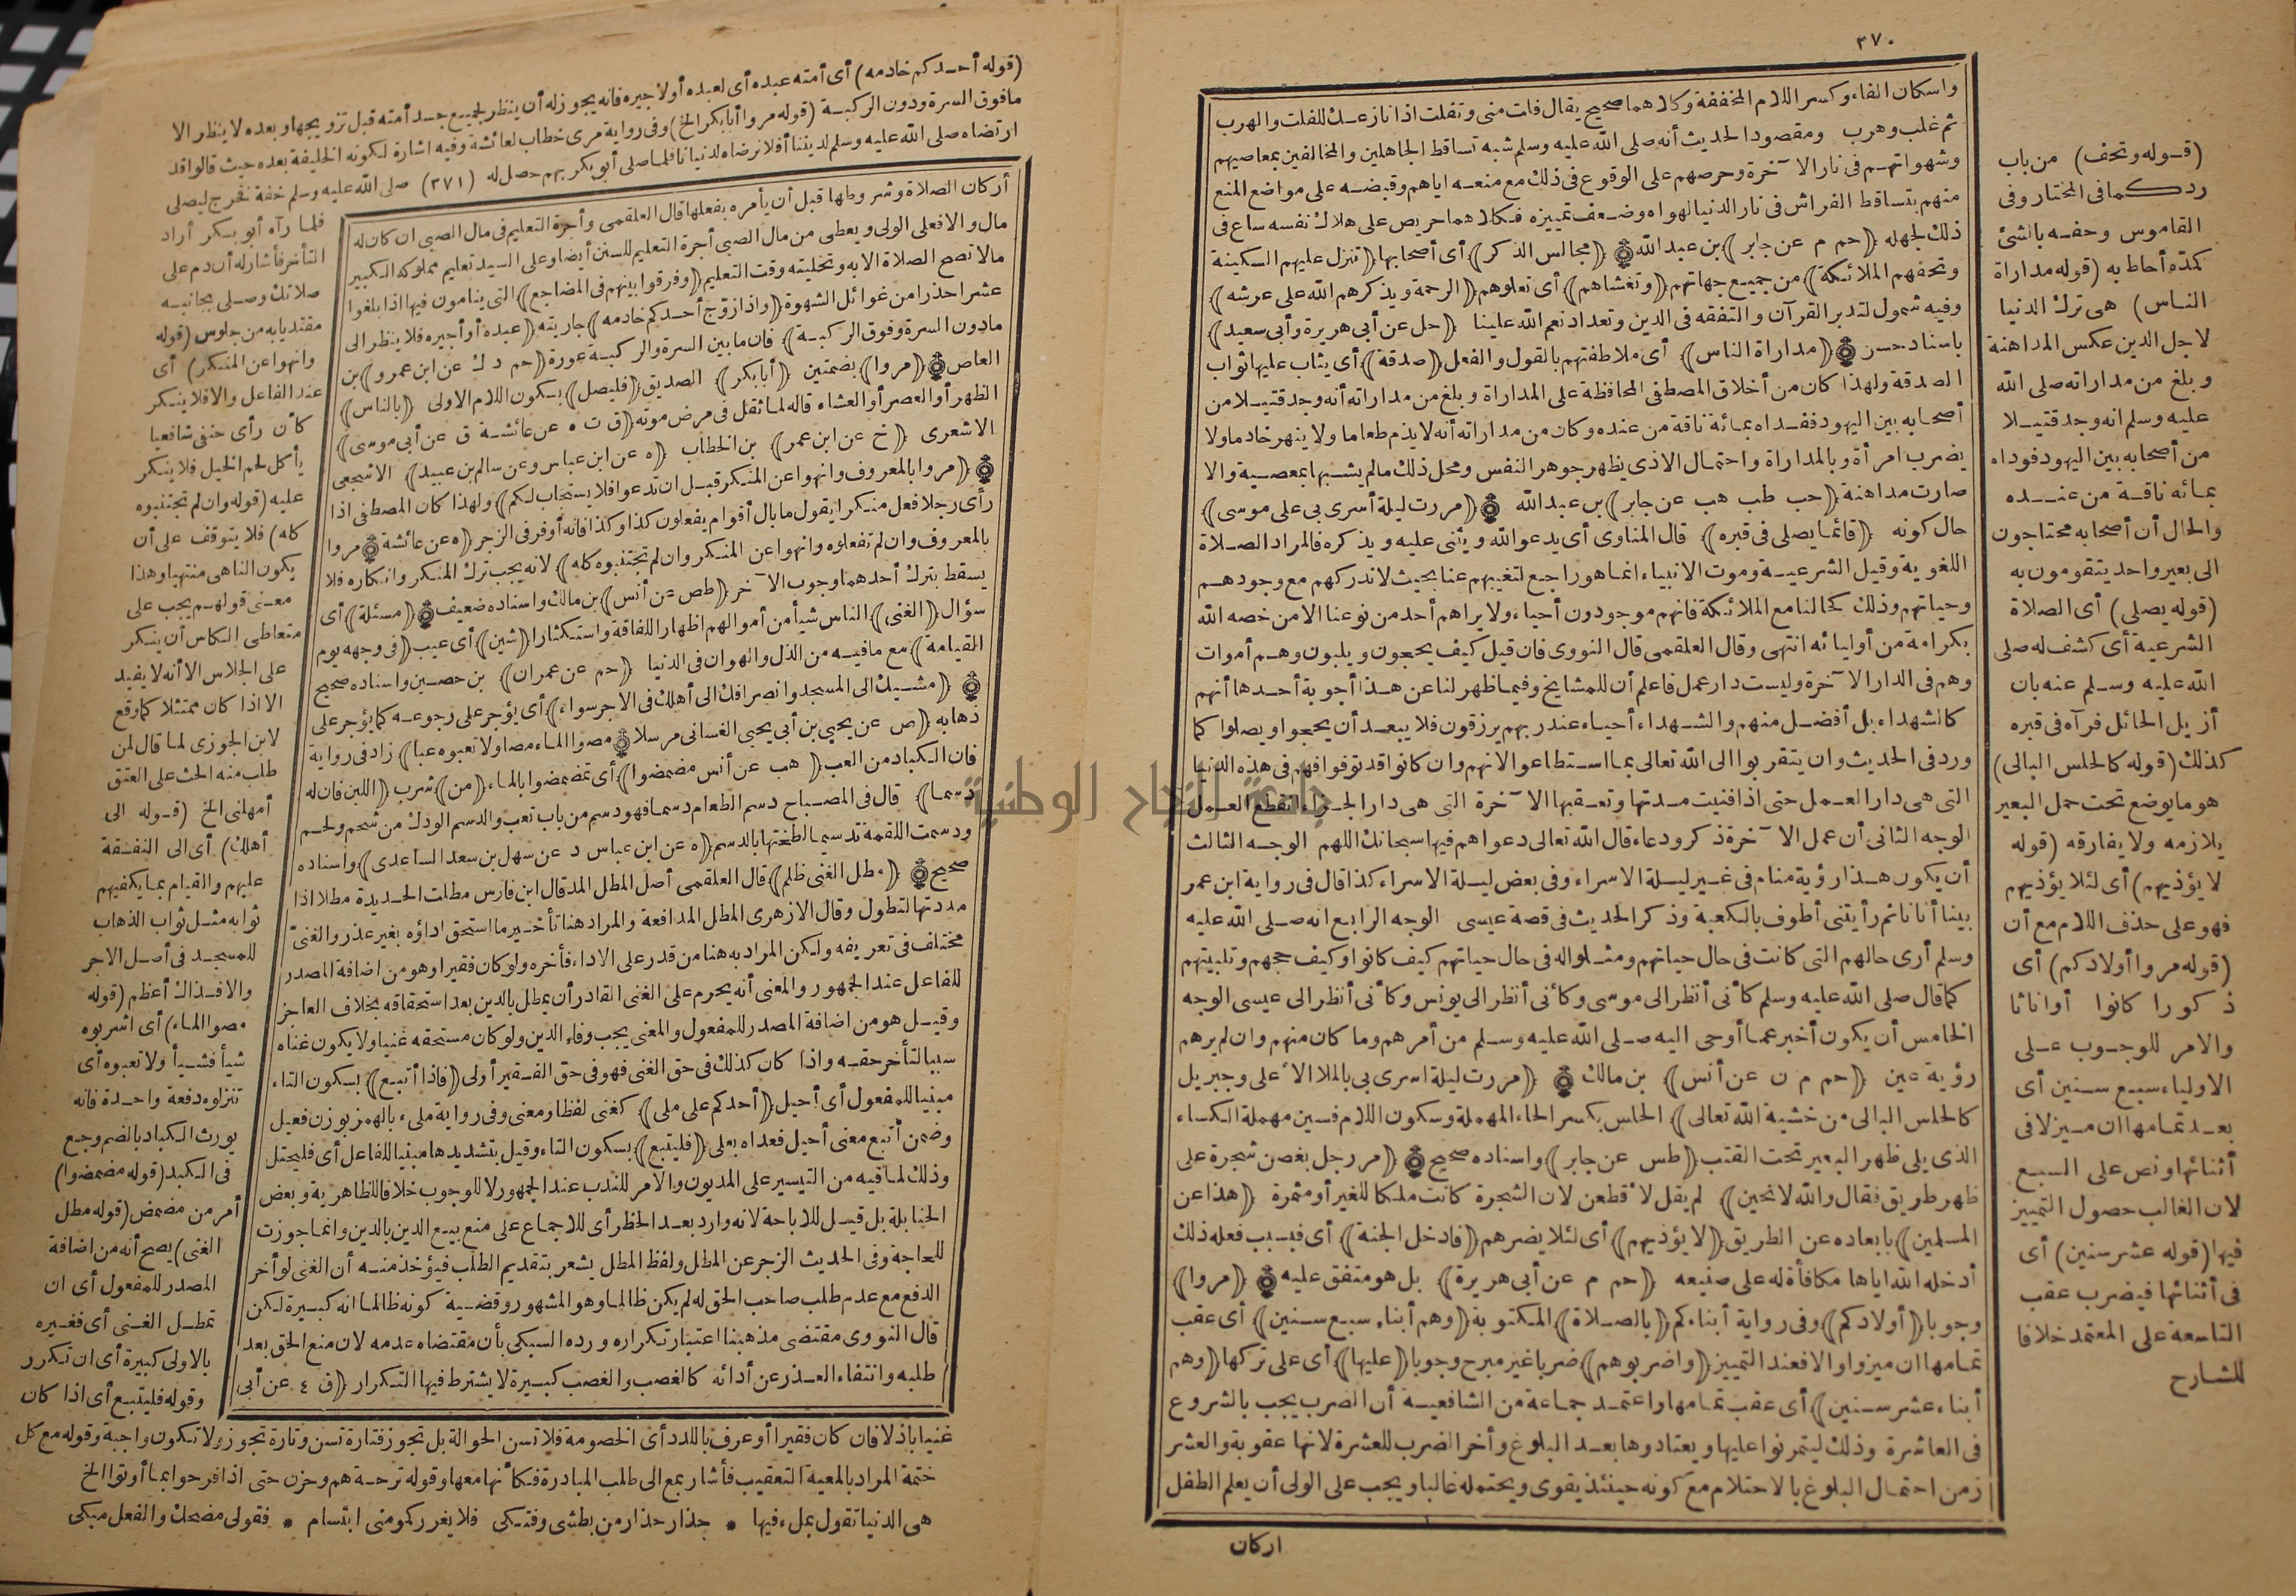 ٣٧٠
واسكان الفاء وكسر اللام المخففة وكلاهما صحيح يقال فلت منى وتفلت اذا نازعك للفلت والهرب
ثم غلب وهرب ومقصود الحديث أنه صلى الله عليه وسلم شبه تساقط الجاهلين والمخالفين بمعاصيهم
وشهواتهم فى نار الآخرة وحرصهم على الوقوع فى ذلك مع منعه اياهم وقبضه على مواضع المنع
منهم بتساقط الفراش فى نار الدنيا لهواه وضعف تمييزه فكلاهما حريص على هلاك نفسه ساع فى
ذلك لجهله (حم م عن جابر) بن عبد الله (مجالس الذكر) أى أصحابها (تنزل عليهم السكينة
وتحفهم الملائكة) من جميع جهاتهم (وتغشاهم) أى تعلوهم (الرحمة ويذكرهم الله على عرشه)
وفيه شمول لتدبر القرآن والتفقه فى الدين وتعداد نعم الله علينا (حل عن أبى هريرة وأبى سعيد)
باسناد حسن (مداراة الناس) أى ملاطفتهم بالقول والفعل (صدقة) أى يثاب عليها ثواب
الصدقة ولهذا كان من أخلاق المصطفى المحافظة على المداراة وبلغ من مداراته أنه وجد قتيلا من
أصحابه بين اليهود ففداه بمائة ناقة من عنده وكان من مداراته أنه لا يذم طعاما ولا ينهر خادما ولا
يضرب امرأة وبالمداراة واحتمال الاذى يظهر جوهر النفس ومحل ذلك ما لم يشبها بمعصية والا
صارت مداهنة (حب طب هب عن جابر) بن عبد الله (مررت ليلة أسرى بى على موسى)
حال كونه (قائما يصلى فى قبره) قال المناوى أى يدعو الله ويثنى عليه ويذكره فالمراد الصلاة
اللغوية وقيل الشرعية وموت الانبياء انما هو راجع لتغيبهم عنا بحيث لا ندركهم مع وجودهم
وحياتهم وذلك كحالنا مع الملائكة فانهم موجودون أحياء ولا يراهم أحد من نوعنا الا من خصه الله
بكرامة من أوليائه انتهى وقال العلقمى قال النووى فان قيل كيف يحجون ويلبون وهم أموات
وهم فى الدار الآخرة وليست دار عمل فاعلم أن للمشايخ وفيما ظهر لنا عن هذا أجوبة أحدها أنهم
كالشهداء بل أفضل منهم والشهداء أحياء عند ربهم يرزقون فلا يبعد أن يحجوا ويصلوا كما
ورد فى الحديث وان يتقربوا الى الله تعالى بما استطاعوا لانهم وان كانوا قد توفوا فهم فى هذه الدنيا
التى هى دار العمل حتى اذا فنيت مدتها وتعقبها الآخرة التى هى دار الجزاء انقطع العمل
الوجه الثانى أن عمل الآخرة ذكر ودعاء قال الله تعالى دعواهم فيها سبحانك اللهم الوجه الثالث
أن يكون هذا رؤية منام فى غير ليلة الاسراء وفى بعض ليلة الاسراء كذا قال فى رواية ابن عمر
بينا أنا نائم رأيتنى أطوف بالكعبة وذكر الحديث فى قصة عيسى الوجه الرابع انه صلى الله عليه
وسلم أرى حالهم التى كانت فى حال حياتهم ومثلوا له فى حال حياتهم كيف كانوا وكيف حجهم وتلبيتهم
كما قال صلى الله عليه وسلم كأنى أنظر الى موسى وكأنى أنظر الى يونس وكأنى أنظر الى عيسى الوجه
الخامس أن يكون أخبر عما أوحى اليه صلى الله عليه وسلم من أمرهم وما كان منهم وان لم يرهم
رؤية عين (حم م ن عن أنس) بن مالك (مررت ليلة اسرى بى بالملا الأعلى وجبريل
كالحلس البالى من خشية الله تعالى) الحلس بكسر الحاء المهملة وسكون اللام فسين مهملة الكساء
الذى يلى ظهر البعير تحت القتب (طس عن جابر) واسناده صحيح (مر رجل بغصن شجرة على
ظهر طريق فقال والله لانحين) لم يقل لأقطعن لان الشجرة كانت ملكا للغير أو مثمرة (هذا عن
المسلمين) بابعاده عن الطريق (لا يؤذيهم) أى لئلا يضرهم (فادخل الجنة) أى فبسبب فعله ذلك
أدخله الله اياها مكافأة له على صنيعه (حم م عن أبى هريرة) بل هو متفق عليه (مروا)
وجوبا (أولادكم) وفى رواية أبناءكم (بالصلاة) المكتوبة (وهم أبناء سبع سنين) أى عقب
تمامها ان ميزوا والا فعند التمييز (واضربوهم) ضربا غير مبرح وجوبا (عليها) أى على تركها (وهم
أبناء عشر سنين) أى عقب تمامها واعتمد جماعة من الشافعية أن الضرب يجب بالشروع
فى العاشرة وذلك ليتمرنوا عليها ويعتادوها بعد البلوغ وأخر الضرب للعشرة لانها عقوبة والعشر
زمن احتمال البلوغ بالاحتلام مع كونه حينئذ يقوى ويحتمله غالبا ويجب على الولى أن يعلم الطفل
اركان
(قوله وتحف) من باب
رد كما فى المختار وفى
القاموس وحفه بالشئ
كمده أحاط به (قوله مداراة
الناس) هى ترك الدنيا
لاجل الدين عكس المداهنة
وبلغ من مداراته صلى الله
عليه وسلم انه وجد قتيلا
من أصحابه بين اليهود فوداه
بمائه ناقة من عنده
والحال أن أصحابه محتاجون
الى بعير واحد يتقومون به
(قوله يصلى) أى الصلاة
الشرعية أى كشف له صلى
الله عليه وسلم عنه بان
أزيل الحائل فرآه فى قبره
كذلك (قوله كالحلس البالى)
هو ما يوضع تحت حمل البعير
يلازمه ولا يفارقه (قوله
لا يؤذيهم) أى لئلا يؤذيهم
فهو على حذف اللام مع أن
(قوله مروا أولادكم) أى
ذكورا كانوا أو اناثا
والامر للوجوب على
الاولياء سبع سنين أى
بعد تمامها ان ميز لا فى
أثنائها ونص على السبع
لان الغالب حصول التمييز
فيها (قوله عشر سنين) أى
فى أثنائها فيضرب عقب
التاسعة على المعتمد خلافا
للشارح
(قوله أحدكم خادمه) أى أمته عبده أى لعبده أو لاجيره فانه يجوز له أن ينظر لجميع جسد أمته قبل تزويجها وبعده لا ينظر الا
ما فوق السرة ودون الركبة (قوله مروا أبا بكر الخ) وفى رواية مرى خطاب لعائشة وفيه اشارة لكونه الخليفة بعده حيث قالوا قد
ارتضاه صلى الله عليه وسلم لديننا أفلا نرضاه لدنيانا فلما صلى أبو بكر بهم حصل له (٣٧١) صلى الله عليه وسلم خفة فخرج ليصلى
أركان الصلاة وشروطها قبل أن يأمره بفعلها قال العلقمى وأجرة التعليم فى مال الصبى ان كان له
مال والا فعلى الولى ويعطى من مال الصبى أجرة التعليم للسنن أيضا وعلى السيد تعليم مملوكه الكبير
ما لا تصح الصلاة الا به وتخليته وقت التعليم (وفرقوا بينهم فى المضاجع) التى ينامون فيها اذا بلغوا
عشرا حذرا من غوائل الشهوة (واذا زوج أحدكم خادمه) جاريته (عبده أو أجيره فلا ينظر الى
ما دون السرة وفوق الركبة) فان ما بين السرة والركبة عورة (حم د ك عن ابن عمرو) بن
العاص (مروا) بضمتين (أبا بكر) الصديق (فليصل) بسكون اللام الاولى (بالناس)
الظهر أو العصر أو العشاء قاله لما ثقل فى مرض موته (ق ت ه عن عائشة ق عن أبى موسى)
الاشعرى (خ عن ابن عمر) بن الخطاب (ه عن ابن عباس وعن سالم بن عبيد) الاشجعى
(مروا بالمعروف وانهوا عن المنكر قبل ان تدعوا فلا يستجاب لكم) ولهذا كان المصطفى اذا
رأى رجلا فعل منكرا يقول ما بال أقوام يفعلون كذا وكذا فانه أوفر فى الزجر (ه عن عائشة مروا
بالمعروف وان لم تفعلوه وانهوا عن المنكر وان لم تجتنبوه كله) لانه يجب ترك المنكر وانكاره فلا
يسقط بترك أحدهما وجوب الآخر (طص عن أنس) بن مالك واسناده ضعيف (مسئلة) أى
سؤال (الغنى) الناس شيأ من أموالهم اظهارا للفاقة واستكثارا (شين) أى عيب (فى وجهه يوم
القيامة) مع ما فيه من الذل والهوان فى الدنيا (حم عن عمران) بن حصين واسناده صحيح
(مشيك الى المسجد وانصرافك الى أهلك فى الاجر سواء) أى يؤجر على رجوعه كما يؤجر على
ذهابه (ص عن يحيى بن أبى يحيى الغسانى مرسلا مصوا الماء مصا ولا تعبوه عبا) زاد فى رواية
فان الكباد من العب (هب عن أنس مضمضوا) أى تمضمضوا بالماء (من) شرب (اللبن فان له
دسما) قال فى المصباح دسم الطعام دسما فهو دسم من باب تعب والدسم الودك من شحم ولحم
ودسمت اللقمة تدسيما لطختها بالدسم (ه عن ابن عباس د عن سهل بن سعد الساعدى) واسناده
صحيح (مطل الغنى ظلم) قال العلقمى أصل المطل المد قال ابن فارس مطلت الحديدة مطلا اذا
مددتها لتطول وقال الازهرى المطل المدافعة والمراد هنا تأخير ما استحق اداؤه بغير عذر والغنى
مختلف فى تعريفه ولكن المراد به هنا من قدر على الاداء فأخره ولو كان فقيرا وهو من اضافة المصدر
للفاعل عند الجمهور والمعنى أنه يحرم على الغنى القادر أن يمطل بالدين بعد استحقاقه بخلاف العاجز
وقيل هو من اضافة المصدر للمفعول والمعنى يجب وفاء الدين ولو كان مستحقه غنيا ولا يكون غناه
سببا لتأخر حقه واذا كان كذلك فى حق الغنى فهو فى حق الفقير أولى (فاذا أتبع) بسكون التاء
مبنيا للمفعول أى أحيل (أحدكم على ملى) كغنى لفظا ومعنى وفى رواية ملىء بالهمز بوزن فعيل
وضمن أتبع معنى أحيل فعداه بعلى (فليتبع) بسكون التاء وقيل بتشديدها مبنيا للفاعل أى فليحتل
وذلك لما فيه من التيسير على المديون والامر للندب عند الجمهور لا للوجوب خلافا للظاهرية وبعض
الحنابلة بل قيل للاباحة لانه وارد بعد الحظر أى للاجماع على منع بيع الدين بالدين وانما جوزت
للحاجة وفى الحديث الزجر عن المطل ولفظ المطل يشعر بتقديم الطلب فيؤخذ منه أن الغنى لو أخر
الدفع مع عدم طلب صاحب الحق له لم يكن ظالما وهو المشهور وقضية كونه ظالما انه كبيرة لكن
قال النووى مقتضى مذهبنا اعتبار تكراره ورده السبكى بأن مقتضاه عدمه لان منع الحق بعد
طلبه وانتفاء العذر عن أدائه كالغصب والغصب كبيرة لا يشترط فيها التكرار (ق ٤ عن أبى
فلما رآه أبو بكر أراد
التأخر فأشار له أن دم على
صلاتك وصلى بجانبه
مقتديا به من جلوس (قوله
وانهوا عن المنكر) أى
عند الفاعل والا فلا ينكر
كأن رأى حنفى شافعيا
يأكل لحم الخيل فلا ينكر
عليه (قوله وان لم تجتنبوه
كله) فلا يتوقف على أن
يكون الناهى منتهيا وهذا
معنى قولهم يجب على
متعاطى الكاس أن ينكر
على الجلاس الا أنه لا يفيد
الا اذا كان ممتثلا كما وقع
لابن الجوزى لما قال لمن
طلب منه الحث على العتق
أمهلنى الخ (قوله الى
أهلك) أى الى النفقة
عليهم والقيام بما يكفيهم
ثوابه مثل ثواب الذهاب
للمسجد فى أصل الاجر
والا فذاك أعظم (قوله
مصوا الماء) أى اشربوه
شيأ فشيأ ولا تعبوه أى
تنزلوه دفعة واحدة فانه
يورث الكباد بالضم وجع
فى الكبد (قوله مضمضوا)
أمر من مضمض (قوله مطل
الغنى) يصح أنه من اضافة
المصدر للمفعول أى ان
تمطل الغنى أى فغيره
بالاولى كبيرة أى ان تكرر
وقوله فليتبع أى اذا كان
غنيا باذلا فان كان فقيرا أو عرف باللدد أى الخصومة فلا تسن الحوالة بل تجوز فتارة تسن وتارة تجوز ولا تكون واجبة وقوله مع كل
ختمة المراد بالمعية التعقيب فأشار بمع الى طلب المبادرة فكأنها معها وقوله ترحة هم وحزن حتى اذا فرحوا بما أوتوا الخ
هى الدنيا تقول بملء فيها * حذار حذار من بطشى وفتكى فلا يغرركمو منى ابتسام * فقولى مضحك والفعل مبكى
جامعة النجاح الوطنية